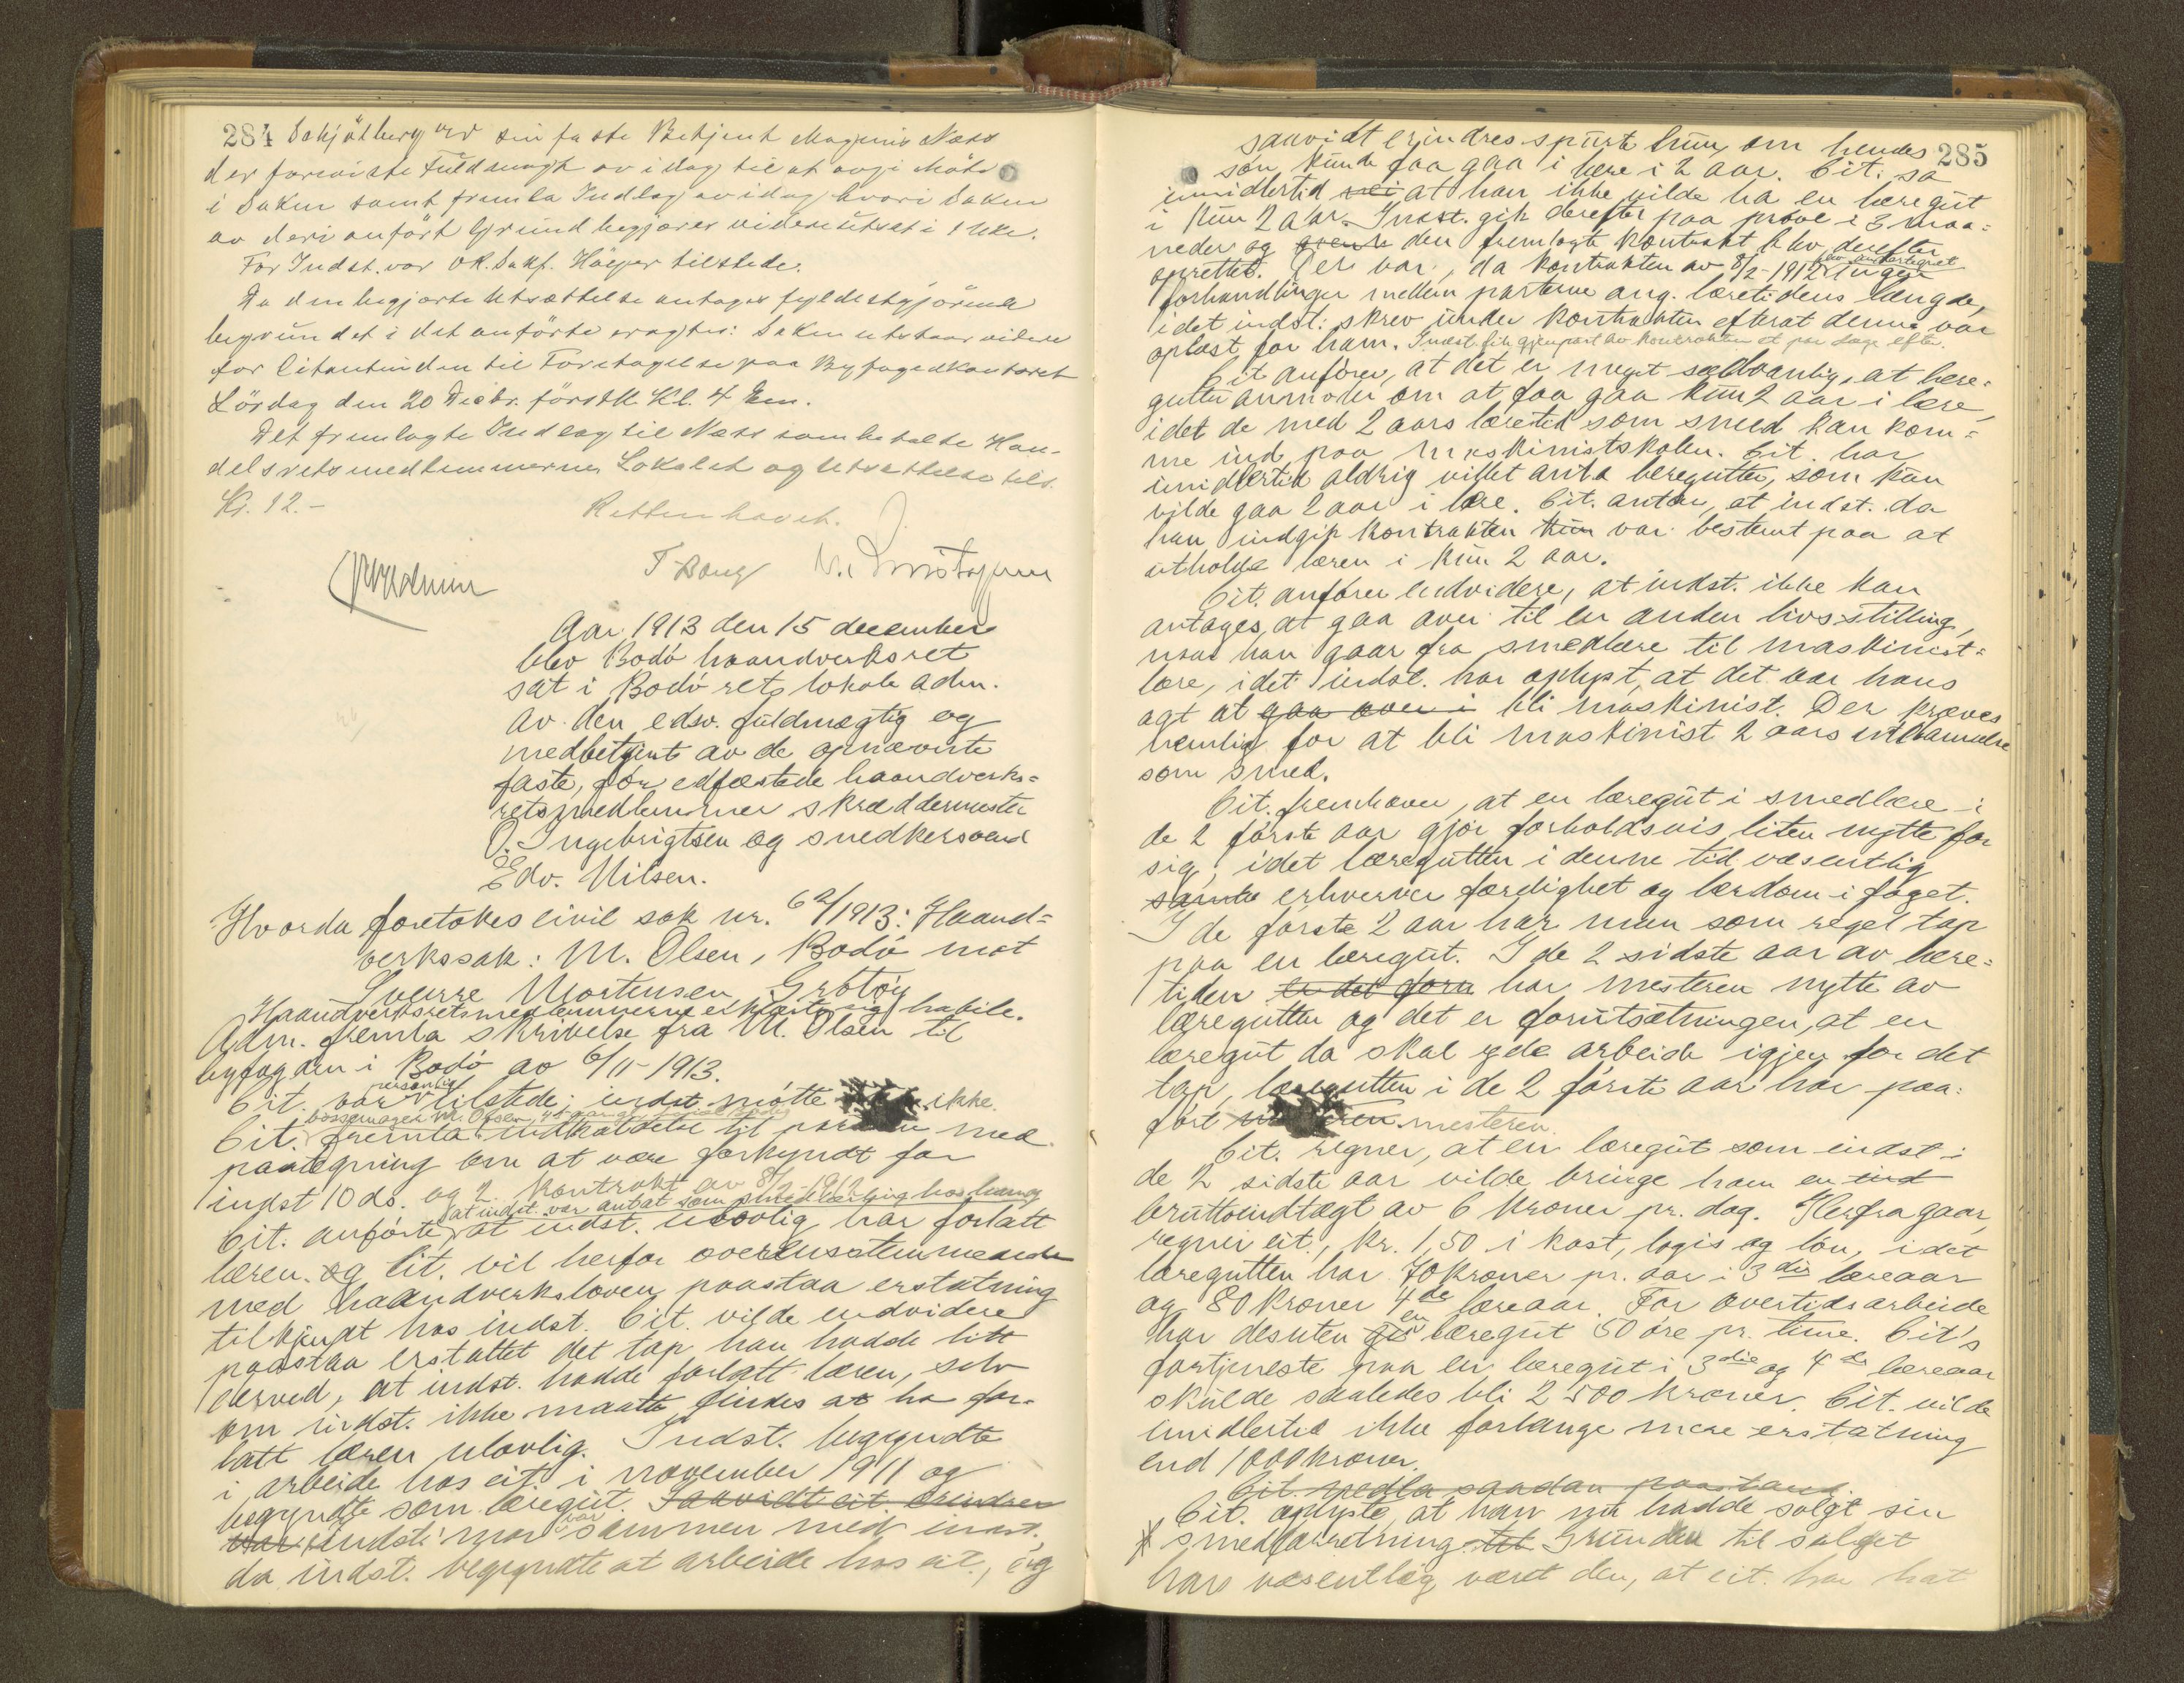 284 Sakjötberg ved sin faste Betjent Magnus Næss
der foreviste Fuldmagt av idag til at avgi Møte
i Saken samt fremla Indlæg av idag hvori Saken
av deri anført Grund begjæres videre utsat i 1 Uke.
For Indst. var OR.Sakf. Höeger tilstede.
Da den begjærte Utsættelse antages fyldestgjørende
begrundet i det anførte eragtes: Saken utstaar videre
for Citantinden til Foretagelse paa Byfogedkontoret
Lördag den 20 Decbr. förstk. Kl. 4 Em.
Det fremlagte Indlæg til Næss som betalte Han-
delsretsmedlemmerne, Lokalet og Utsættelse tils.
Kr. 12.-
Retten hævet.
T Bang
Aar 1913 den 15 december
blev Bodö haandverksret
sat i Bodö rets lokale adm.
av den edsv. fuldmægtig og
medbetjent av de opnævnte
faste, før edfæstede haandverks-
retsmedlemmer skræddermester
O. Ingebrigtsen og snedkersvend
Edv. Nilsen.
Hvorda foretokes civil sak nr. 62/1913: Haand-
verkssak: M. Olsen, Bodö mot
Sverre Mortensen, Grötöy
Haandverksretsmedlemmerne erklærte sig habile.
Adm. fremla skrivelse fra M. Olsen til
byfogden i Bodö av 6/11-1913.
personlig
Cit. var tilstede; indst møtte ikke.
bössemager M. Olsen
Cit. fremla indkaldelse til med
paategning om at være forkyndt for
indst 10 ds. og 2. Kontrakt av 8/2-1912
at indst. var antat som smedlærling hos ham og
Cit. anførte at indst. ulovlig har forlatt
læren. og Cit. vil herfor overensstemmende
med haandverksloven paastaa erstatning
tilkjendt hos indst. Cit. vilde endvidere
paastaa erstattet det tap han hadde litt
derved, at indst. hadde forlatt læren, selv
om indst. ikke maatte findes at ha for-
latt læren ulovlig. Indst. begyndte
i arbeide hos cit. i november 1911 og
begyndte som læregut. Saavidt cit. erindrer
var indst: mor var sammen med indst,
da indst. begyndte at arbeide hos cit., og
285
saavidt erindres spurte hun, om hendes
søn kunde faa gaa i lære i 2 aar. Cit. sa
imidlertid nei at han ikke vilde ha en læregut
i kun 2 aar. Indst. gik derefter paa prøve i 3 maa-
neder og den fremlagte kontrakt blev derefter
oprettet. Der var, da kontrakten av 8/2-1912 blev undertegnet ingen
forhandlinger mellem parterne ang. læretidens længde,
idet indst: skrev under kontrakten efterat denne var
oplæst for ham. Indst. fik gjenpart av kontrakten et par dage efter.
Cit anfører, at det er meget sædvanlig, at lære-
gutter anmoder om at faa gaa kun 2 aar i lære,
idet de med 2 aars læretid som smed kan kom-
me ind paa maskinistskolen. Cit. har
imidlertid aldrig villet anta læregutter, som kun
vilde gaa 2 aar i lære. Cit. antar, at indst. da
han indgik kontrakten kun var bestemt paa at
utholde læren i kun 2 aar.
Cit. anfører endvidere, at indst. ikke kan
antages, at gaa over til en anden livsstilling,
naar han gaar fra smedlære til maskinist-
lære, idet indst. har oplyst, at det var hans
agt at gaa over i bli maskinist. Der kræves
nemlig for at bli maskinist 2 aars utdannelse
som smed.
Cit. fremhæver, at en læregut i smedlære i
de 2 første aar gjör forholdsvis liten nytte for
sig, idet læregutten i denne tid væsentlig
samle erhverver færdighet og lærdom i faget.
I de første 2 aar har man som regel tap
paa en læregut. I de 2 sidste aar av lære-
tiden er det først har mesteren nytte av
læregutten og det er forutsætningen, at en
læregut da skal yde arbeide igjen for det
tap, læregutten i de 2 første aar har paa-
ført mesteren.
Cit. regner, at en læregut som indst i
de 2 sidste aar vilde bringe ham en ind
bruttoindtægt av 6 kroner pr. dag. Herfra gaar,
regner cit., kr. 1,50 i kost, logis og løn, idet
læregutten har 70 kroner pr. aar i 3die læreaar
og 80 kroner 4de læreaar. For overtidsarbeide
har desuten en læregut 50 øre pr. time. Cit's
fortjeneste paa en læregut i 3die og 4de læreaar
skulde saaledes bli 2500 kroner. Cit. vilde
imidlertid ikke forlange mere erstatning
end 1000 kroner.
Cit. nedla saadan paastand.
Cit. oplyste, at han nu hadde solgt sin
smedforretning. Grunden til salget
har væsentlig været den, at cit. har hat